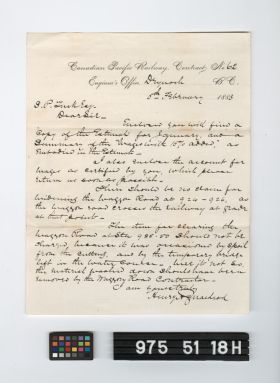 Canadian Pacific Railway, Contract, No 62
Engineer's Office, Drynoch B.C.
5th February 1883
Dear Sir.
Enclosed you will find a
Copy of the Estimate for January, and a
Summary of the Wages with 15% added, as
Embodied in the Estimate.
I also Enclose the account for
wages as certified by you, which please
return as soon as possible.
There should be no claim for
widening the Waggon Road at 920-926, as
the waggon road crosses the railway at grade
at that point.
The time for clearing the
waggon Road at Sta 985.50 should not be
charged, because it was occasioned by spoil
from the cutting, and by the temporary bridge
left in the water course.
the material washed down should have been
removed by the Waggon Road Contractor.
I am yours truly
Henry
975 51 18H